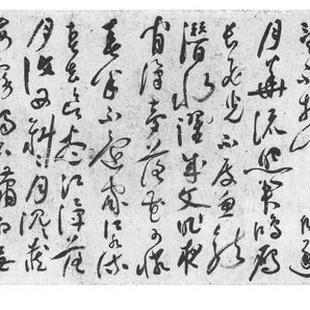 望不相聞願逐
月華流照君鴻雁
長飛光不度魚龍
潛躍水成文昨夜
閒潭夢落花可憐
春半不還家江水流
春去欲盡江潭落
月復西斜斜月沉沉藏
海霧碣石瀟湘無